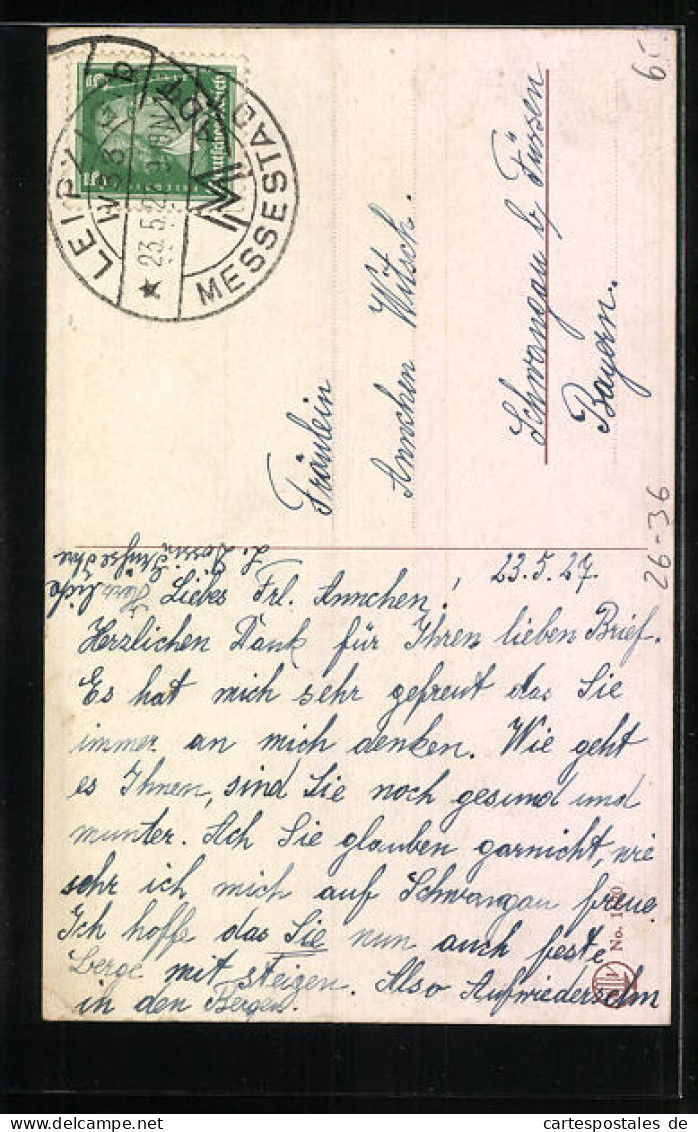 LEIPZIG
MESSESTADT
★ 23.5.2
Deutsches Reich
6.-
Fräulein
Annchen Witsch.
Schwangau b/ Füssen
Bayern.
26-36
23.5.27.
Liebes Frl. Annchen!
Herzlichen Dank für Ihren lieben Brief.
Es hat mich sehr gefreut das Sie
immer an mich denken. Wie geht
es Ihnen, sind Sie noch gesund und
munter. Ach Sie glauben garnicht, wie
sehr ich mich auf Schwangau freue.
Ich hoffe das Sie nun auch feste
Berge mit steigen. Also Aufwiedersehn
in den Bergen.
Herzliche
Grüsse Ihre
L.
No.
www.oldthing.de
cartespostales de